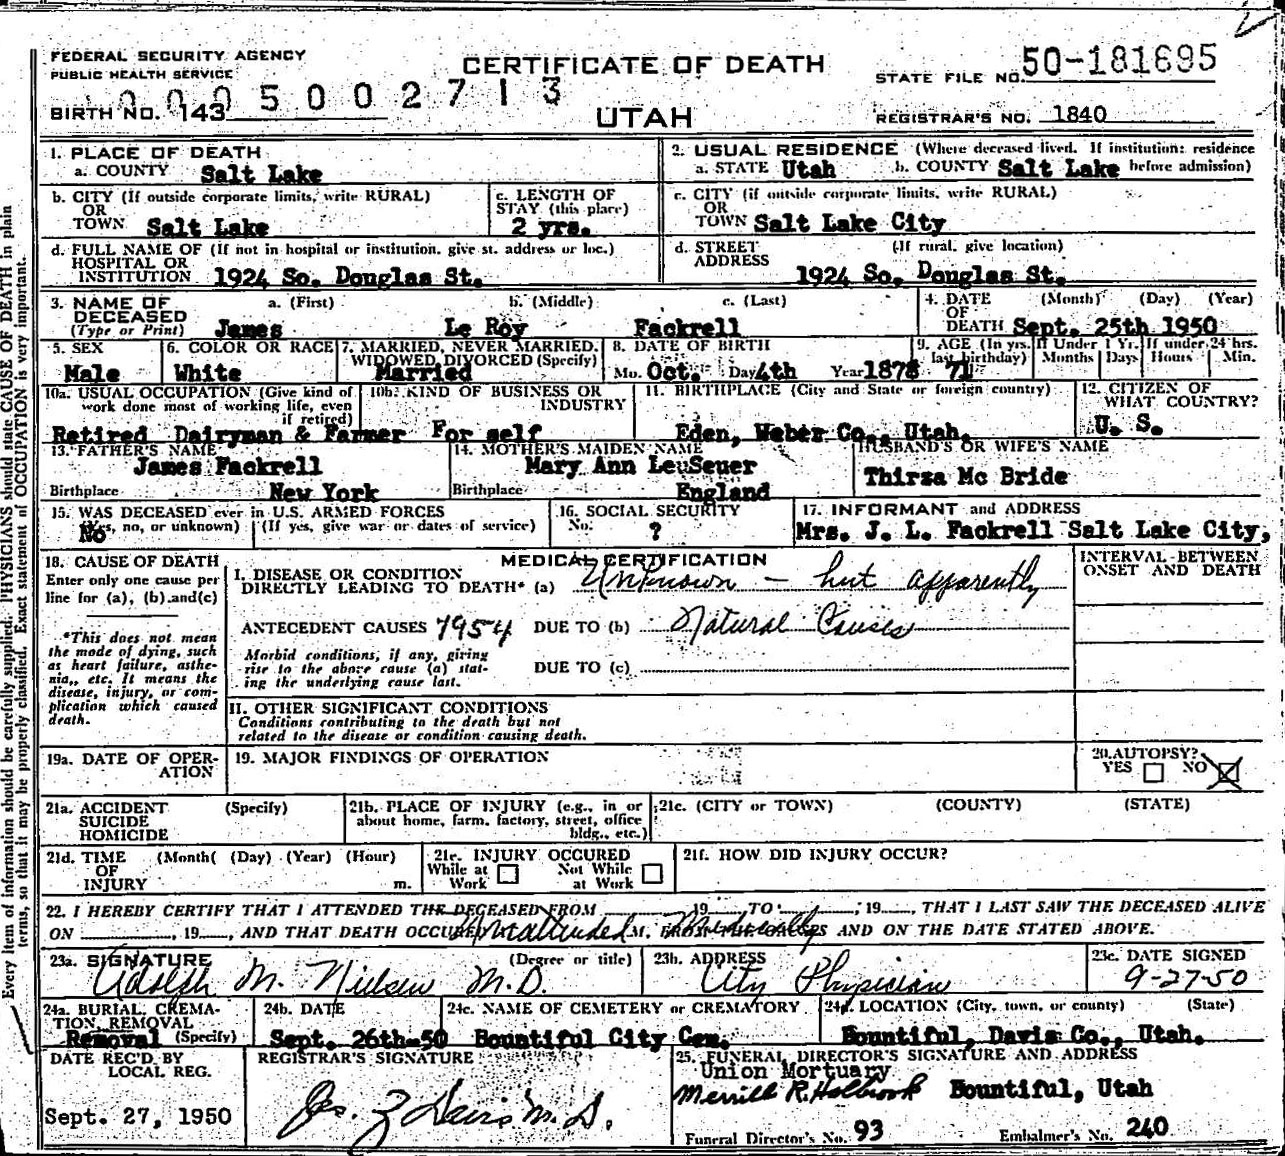 FEDERAL SECURITY AGENCY
PUBLIC HEALTH SERVICE
CERTIFICATE OF DEATH
UTAH
STATE FILE NO. 50-181695
0005002713
BIRTH NO. 143
REGISTRAR'S NO. 1840
1. PLACE OF DEATH
a. COUNTY Salt Lake
2. USUAL RESIDENCE (Where deceased lived. If institution: residence before admission)
a. STATE Utah b. COUNTY Salt Lake
b. CITY (If outside corporate limits, write RURAL)
OR
TOWN Salt Lake
c. LENGTH OF
STAY (this place)
2 yrs.
c. CITY (if outside corporate limits, write RURAL)
OR
TOWN Salt Lake City
d. FULL NAME OF (If not in hospital or institution, give st. address or loc.)
HOSPITAL OR
INSTITUTION 1924 So. Douglas St.
d. STREET (If rural, give location)
ADDRESS
1924 So. Douglas St.
3. NAME OF DECEASED
(Type or Print)
a. (First) b. (Middle) c. (Last)
James Le Roy Fackrell
4. DATE (Month) (Day) (Year)
OF
DEATH Sept. 25th 1950
5. SEX
Male
6. COLOR OR RACE
White
7. MARRIED, NEVER MARRIED,
WIDOWED, DIVORCED (Specify)
Married
8. DATE OF BIRTH
Mo. Oct. Day 4th Year 1878
9. AGE (In yrs. last birthday)
71
If Under 1 Yr.
Months Days
If under 24 hrs.
Hours Min.
10a. USUAL OCCUPATION (Give kind of
work done most of working life, even
if retired)
Retired Dairyman & Farmer
10b. KIND OF BUSINESS OR
INDUSTRY
For self
11. BIRTHPLACE (City and State or foreign country)
Eden, Weber Co., Utah.
12. CITIZEN OF
WHAT COUNTRY?
U. S.
13. FATHER'S NAME
James Fackrell
Birthplace New York
14. MOTHER'S MAIDEN NAME
Mary Ann LeuSeuer
Birthplace England
HUSBAND'S OR WIFE'S NAME
Thirza Mc Bride
15. WAS DECEASED ever in U.S. ARMED FORCES
(Yes, no, or unknown) (If yes, give war or dates of service)
No
16. SOCIAL SECURITY
No. ?
17. INFORMANT and ADDRESS
Mrs. J. L. Fackrell Salt Lake City,
18. CAUSE OF DEATH
Enter only one cause per
line for (a), (b) and (c)
*This does not mean
the mode of dying, such
as heart failure, asthe-
nia, etc. It means the
disease, injury, or com-
plication which caused
death.
MEDICAL CERTIFICATION
I. DISEASE OR CONDITION
DIRECTLY LEADING TO DEATH* (a) Unknown - but apparently
ANTECEDENT CAUSES 7954 DUE TO (b) Natural Causes
Morbid conditions, if any, giving
rise to the above cause (a) stat-
ing the underlying cause last.
DUE TO (c)
II. OTHER SIGNIFICANT CONDITIONS
Conditions contributing to the death but not
related to the disease or condition causing death.
INTERVAL BETWEEN
ONSET AND DEATH
19a. DATE OF OPER-
ATION
19. MAJOR FINDINGS OF OPERATION
20. AUTOPSY?
YES NO X
21a. ACCIDENT (Specify)
SUICIDE
HOMICIDE
21b. PLACE OF INJURY (e.g., in or
about home, farm, factory, street, office
bldg., etc.)
21c. (CITY or TOWN) (COUNTY) (STATE)
21d. TIME (Month( (Day) (Year) (Hour)
OF
INJURY m.
21e. INJURY OCCURED
While at Work Not While at Work
21f. HOW DID INJURY OCCUR?
22. I HEREBY CERTIFY THAT I ATTENDED THE DECEASED FROM 19 TO , 19 , THAT I LAST SAW THE DECEASED ALIVE
ON , 19 , AND THAT DEATH OCCURED M. FROM THE CAUSES AND ON THE DATE STATED ABOVE.
Unattended Medically
23a. SIGNATURE (Degree or title)
Adolph M. Nielsen M.D.
23b. ADDRESS
City Physician
23c. DATE SIGNED
9-27-50
24a. BURIAL, CREMA-
TION, REMOVAL
Removal (Specify)
24b. DATE
Sept. 26th-50
24c. NAME OF CEMETERY or CREMATORY
Bountiful City Cem.
24d. LOCATION (City, town, or county) (State)
Bountiful, Davis Co., Utah.
DATE REC'D BY
LOCAL REG.
Sept. 27, 1950
REGISTRAR'S SIGNATURE
Jas. Z Davis M.D.
25. FUNERAL DIRECTOR'S SIGNATURE AND ADDRESS
Union Mortuary
Merrill R. Holbrook Bountiful, Utah
Funeral Director's No. 93 Embalmer's No. 240
Every item of information should be carefully supplied. PHYSICIANS should state CAUSE OF DEATH in plain
terms, so that it may be properly classified. Exact statement of OCCUPATION is very important.